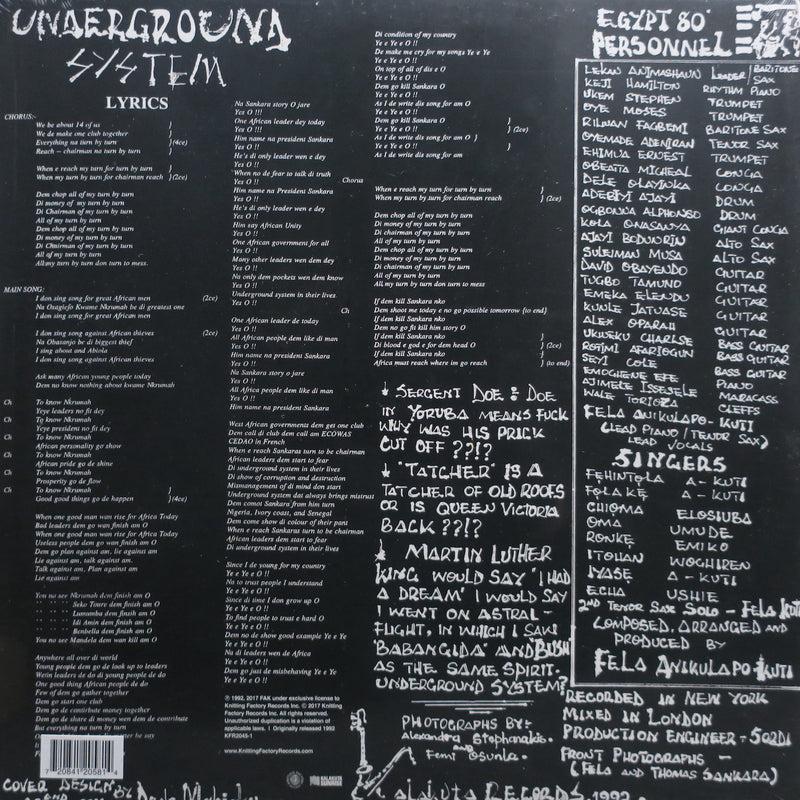 UNDERGROUND
SYSTEM
LYRICS
CHORUS:-
We be about 14 of us }
We de make one club together }
Everything na turn by turn } (4ce)
Reach - chairman na turn by turn }
When e reach my turn for turn by turn }
When my turn by turn for chairman reach } (2ce)
Dem chop all of my turn by turn
Di money of my turn by turn
Di Chairman of my turn by turn
All of my turn by turn
Dem chop all of my turn by turn
Di money of my turn by turn
Di Chairman of my turn by turn
All of my turn by turn
All my turn by turn don turn to mess.
MAIN SONG:
I don sing song for great African men (2ce)
Na Osagiefo Kwame Nkrumah be di greatest one
I don sing song for great African men
I don sing song against African thieves (2ce)
Na Obasanjo be di biggest thief
I sing about and Abiola
I don sing song against African thieves
Ask many African young people today
Dem no know nothing about kwame Nkrumah
Ch To know Nkrumah
Yeye leaders no fit dey
Ch To know Nkrumah
Yeye president no fit dey
Ch To know Nkrumah
African personality go show
Ch To know Nkrumah
African pride go de shine
Ch To know Nkrumah
Prosperity go de flow
Ch To know Nkrumah }
Good good things go de happen } (4ce)
When one good man wan rise for Africa Today
Bad leaders dem go wan finish am O
When one good man wan rise for Africa Today
Useless people dem go wan finish am O
Dem go plan against am, lie against am
Lie against am, talk against am.
Talk against am, Plan against am
Lie against am
You no see Nkrumah dem finish am O
" " " Seko Toure dem finish am O
" " " Lumumba dem finish am O
" " " Idi Amin dem finish am O
" " " Benbella dem finish am O
You no see Mandela dem wan kill am O
Anywhere all over di world
Young people dem go de look up to leaders
Wetin leaders de do di young people de do
One good thing African people de do
Few of dem go gather together
Dem go start one club
Dem go de contribute money together
Dem go de share di money wen dem de contribute
But everything no turn by turn
7 20841 20581 4
COVER DESIGN BY
AND
Na Sankara story O jare
Yes O !!!
One African leader dey today
Yes O !!!
Him name na president Sankara
Yes O !!
He's di only leader wen e dey
Yes O !!
When no de fear to talk di truth
Yes O !! Chorus
Him name na President Sankara
Yes O !!
He's di only leader wen e dey
Yes O !!
Him say African Unity
Yes O !!
One African government for all
Yes O !!
Many other leaders wen dem dey
Yes O !!
Na only dem pockets wen dem know
Yes O !!
Underground system in their lives
Yes O !! Ch
One African leader de today
Yes O !!
All African people dem like di man
Yes O !!
Him name na president Sankara
Yes O !!
Na Sankara story o jare
Yes O !!
All Africa people dem like di man
Yes O !!
Him name na president Sankara
West African governments dem get one club
Dem call di club dem call am ECOWAS
CEDAO in French
When e reach Sankaras turn to be chairman
African leaders dem start to fear
Di underground system in their lives
Di show of corruption and destruction
Mismanagement of di mind don start
Underground system dat always brings mistrust
Dem comot Sankara from him turn
Nigeria, Ivory coast, and Senegal
Dem come show di colour of their pant
When e reach Sankaras turn to be chairman
African leaders dem start to fear
Di underground system in their lives
Since I de young for my country
Ye e Ye e O !!
Na to trust people I understand
Ye e Ye e O !!
Since di time I don grow up O
Ye e Ye e O !!
To find people to trust e hard O
Ye e Ye e O !!
Dem no de show good example Ye e Ye
Ye e Ye e O !!
Na di leaders wen de Africa
Ye e Ye e O !!
Dem go just de misbehaving Ye Ye
Ye e Ye e O !!
℗ 1992, 2017 FAK under exclusive license to
Knitting Factory Records Inc. © 2017 Knitting
Factory Records Inc. All rights reserved.
Unauthorized duplication is a violation of
applicable laws. | Originally released 1992
KFR2045-1
www.KnittingFactoryRecords.com
KALAKUTA
SUNRISE
Di condition of my country
Ye e Ye e O !!
De make me cry for my songs Ye e Ye
Ye e Ye e O !!
On top of all of dis e O
Ye e Ye e O !!
Dem go kill Sankara O
Ye e Ye e O !!
As I de write dis song for am O
Ye e Ye e O !!
Dem go kill Sankara O }
Ye e Ye e O !! } (2ce)
As I de write dis song for am O }
Ye e Ye e O !! }
As I de write dis song for am
When e reach my turn for turn by turn }
When my turn by turn for chairman reach } (2ce)
Dem chop all of my turn by turn
Di money of my turn by turn
Di chairman of my turn by turn
All of my turn by turn
Dem chop all of my turn by turn
Di money of my turn by turn
Di chairman of my turn by turn
All of my turn by turn
All, my turn by turn don turn to mess
If dem kill Sankara nko
Dem shoot me today e no go possible tomorrow {to end}
If dem kill Sankara nko
Dem no go fit kill him story O
If dem kill Sankara nko }
Di blood e god e for dem head O } (2ce)
If dem kill Sankara nko }
Africa must reach where im go reach } (to end)
SERGENT DOE : DOE
IN YORUBA MEANS FUCK
WHY WAS HIS PRICK
CUT OFF ??!?
"TATCHER" IS A
TATCHER OF OLD ROOFS
OR IS QUEEN VICTORIA
BACK ??!?
MARTIN LUTHER
KING WOULD SAY 'I HAD
A DREAM' I WOULD SAY
I WENT ON ASTRAL-
FLIGHT, IN WHICH I SAW
'BABANGIDA' AND 'BUSH'
AS THE SAME SPIRIT-
UNDERGROUND SYSTEM?
PHOTOGRAPHS BY:-
Alexandra Stephanakis.
AND
Femi Osunla.
KALAKUTA RECORDS 1992
EGYPT 80'
PERSONNEL
LEKAN ANIMASHAUN LEADER / BARITONE SAX
KEJI HAMILTON RHYTHM PIANO
UKEM STEPHEN TRUMPET
OYE MOSES TRUMPET
RILWAN FAGBEMI BARITONE SAX
OYEMADE ADENIRAN TENOR SAX
EHIMUA ERNEST TRUMPET
OBEATTA MICHEAL CONGA
DELE OLAYINKA CONGA
ADEBIYI AJAYI DRUM
OGBONNA ALPHONSO DRUM
KOLA ONASANYA GIANT CONGA
AJAYI BODUNRIN ALTO SAX
SULEIMAN MUSA ALTO SAX
DAVID OBAYENDO GUITAR
TUGBO TAMUNO GUITAR
EMEKA ELENDU GUITAR
KUNLE JATUASE GUITAR
ALEX OPARAH GUITAR
UKWEKU CHARLSE BASS GUITAR
ROTIMI AFARIOGUN BASS GUITAR
SEYI COLE BASS GUITAR
EMOGHENE EFE PIANO
AJIMELE ISSESELE MARACASS
WALE TORIOZA CLEFFS
FELA ANIKULAPO-KUTI
(LEAD PIANO / TENOR SAX)
LEAD VOCALS
SINGERS
FEHINTOLA A-KUTI
FOLAKE A-KUTI
CHIOMA ELOSIUBA
OMA UMUDE
RONKE EMIKO
ITOHAN WOGHIREN
IYASE A-KUTI
ECHA USHIE
2ND TENOR SAX SOLO - FELA KUTI
COMPOSED, ARRANGED AND
PRODUCED BY
FELA ANIKULAPO-KUTI
RECORDED IN NEW YORK
MIXED IN LONDON
PRODUCTION ENGINEER - SORDI
FRONT PHOTOGRAPHS -
(FELA AND THOMAS SANKARA)